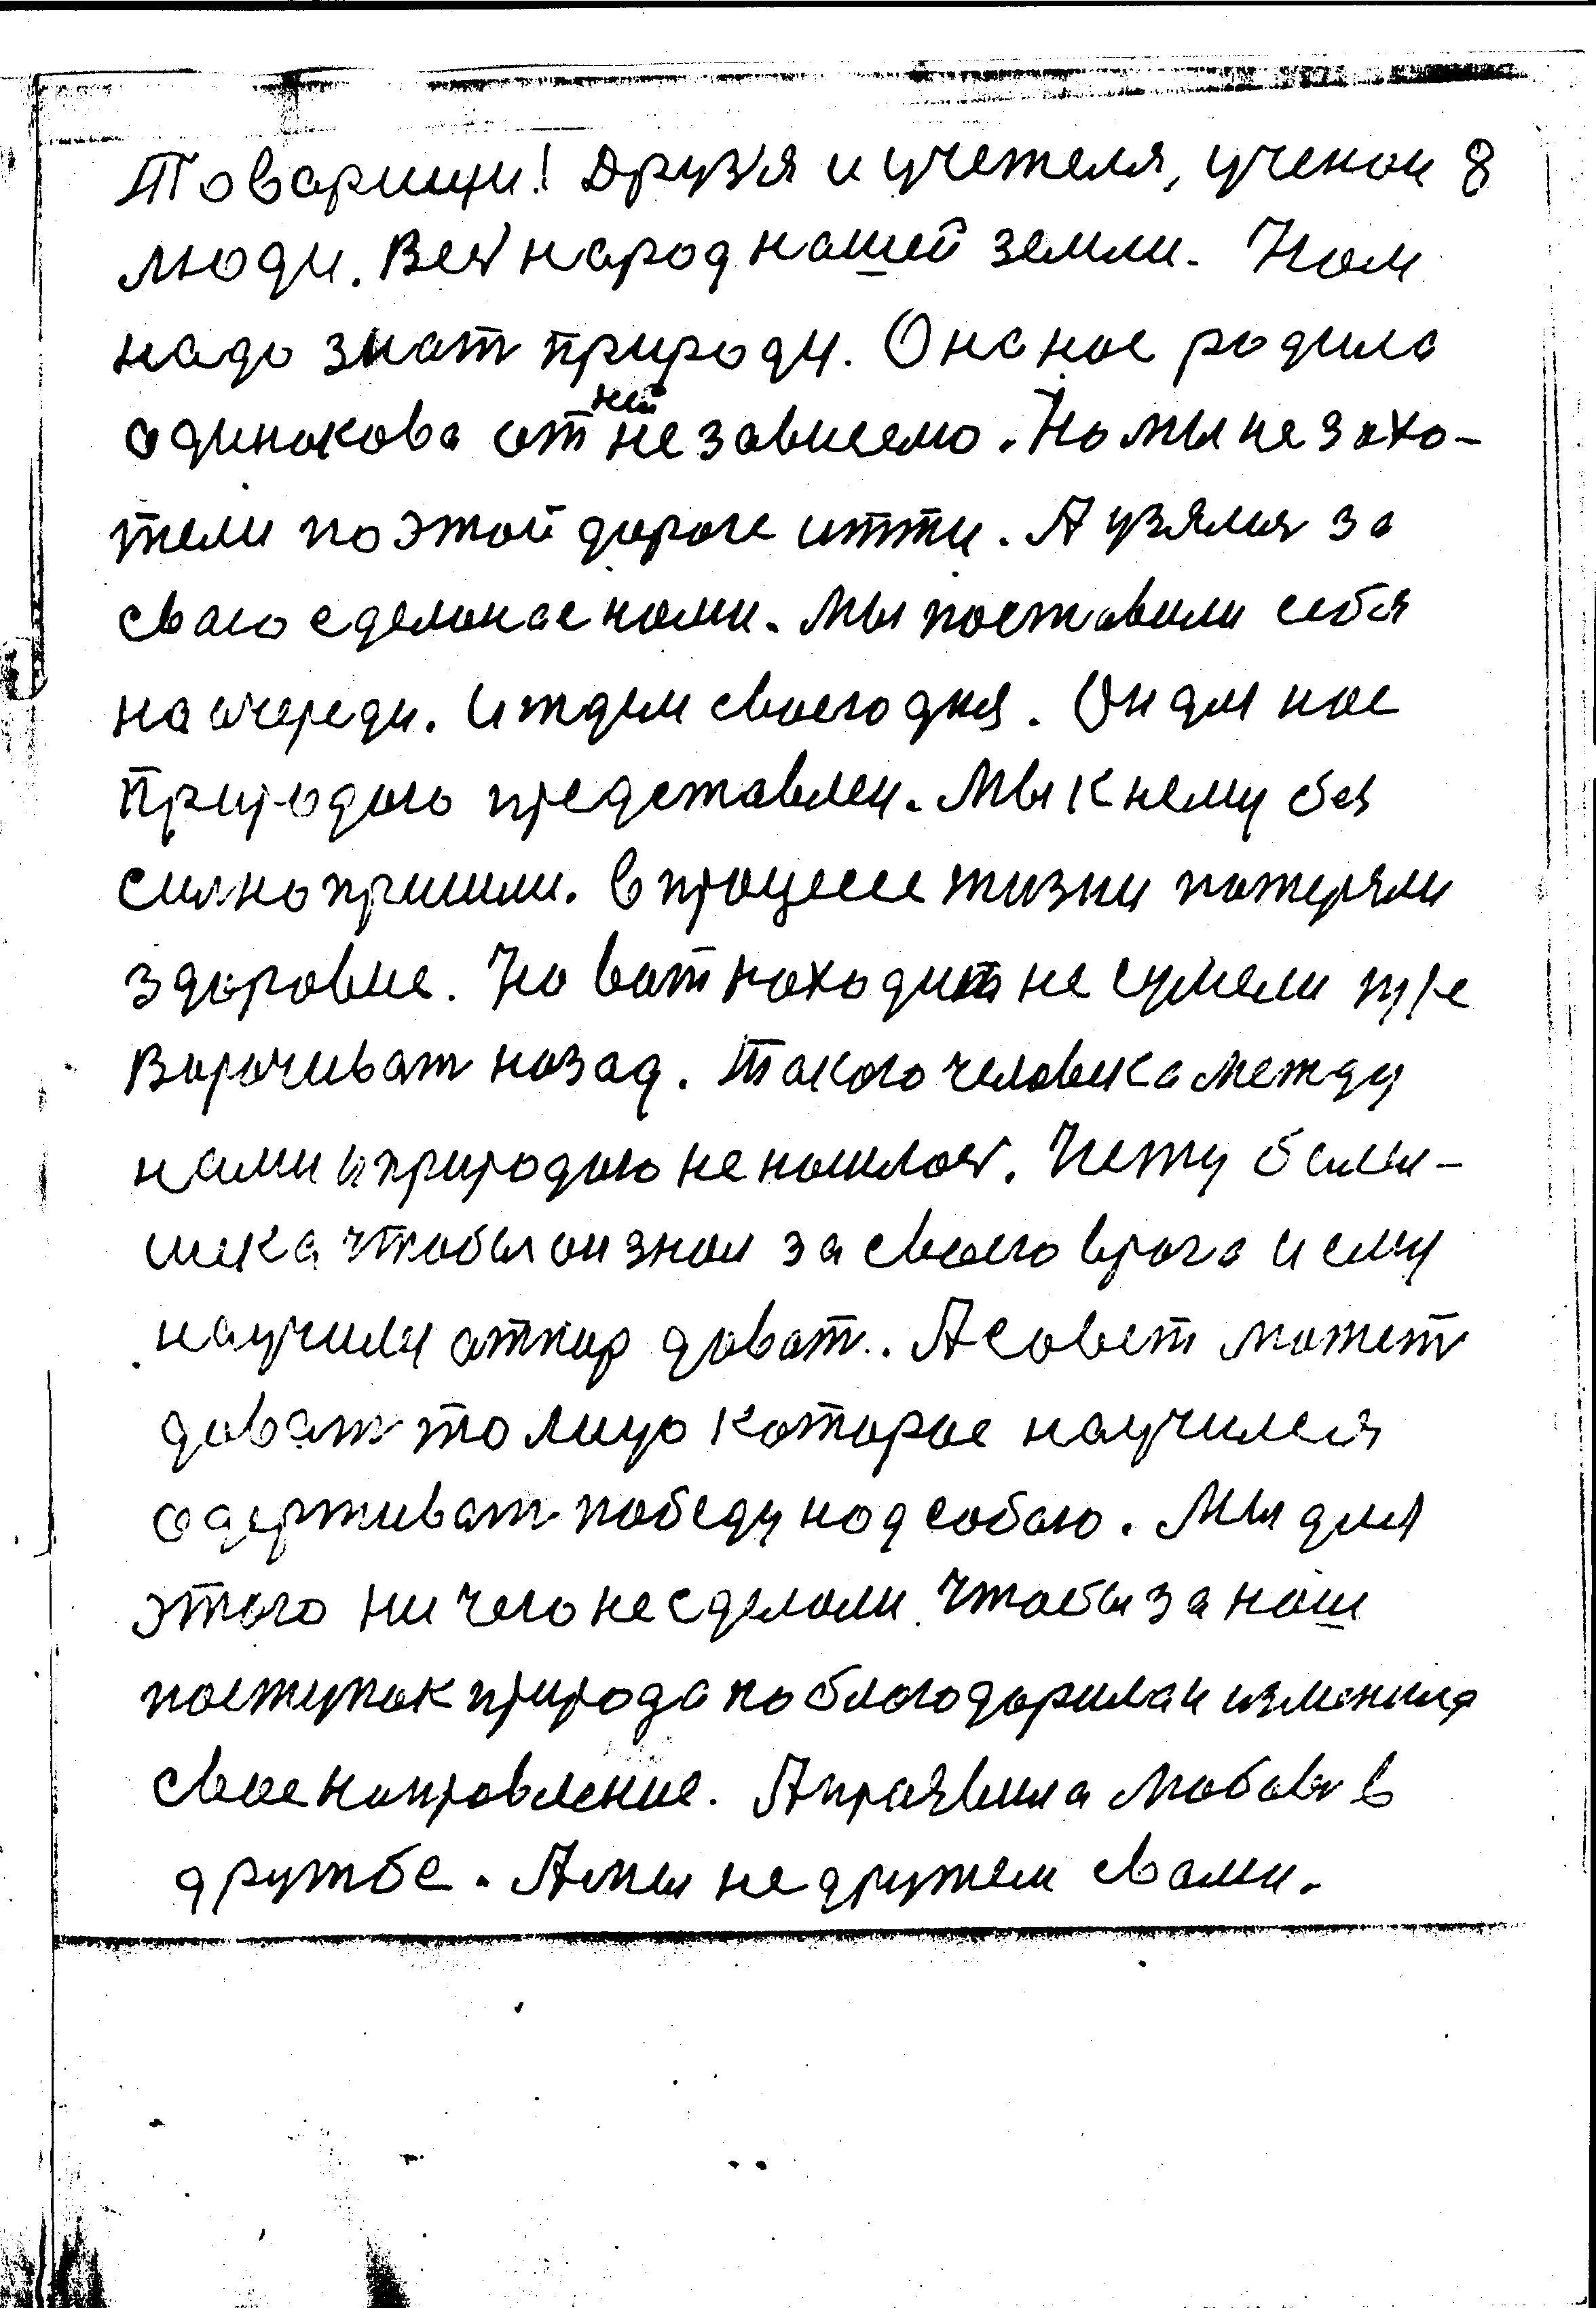 Товарищи! Друзья и учетеля, ученои 8
люди. Весь народ нашей земли. Нам
надо знать природу. Она нас родила
одинакова от ней не зависемо. Но мы не захо-
тели по этой дороге итти. А узялись за
сваю сделанае нами. Мы поставили себя
на очереди. И ждем своего дня. Он для нас
природою представлен. Мы к нему бес
сильно пришли. В процессе жизни потеряли
здоровие. Но вот находить не сумели пре
ворачивать назад. Такого человека между
нами и природою не нашлось. Нету больн-
ика чтобы он знал за своего врага и ему
научили отпор давать. А совет может
давать то лицо которое научился
одерживать победу над собою. Мы для
этого ни чего не сделали. Чтобы за наш
поступок природа поблагодарила и изменила
свое направление. А проявила любовь в
дружбе. А мы не дружем с вами.